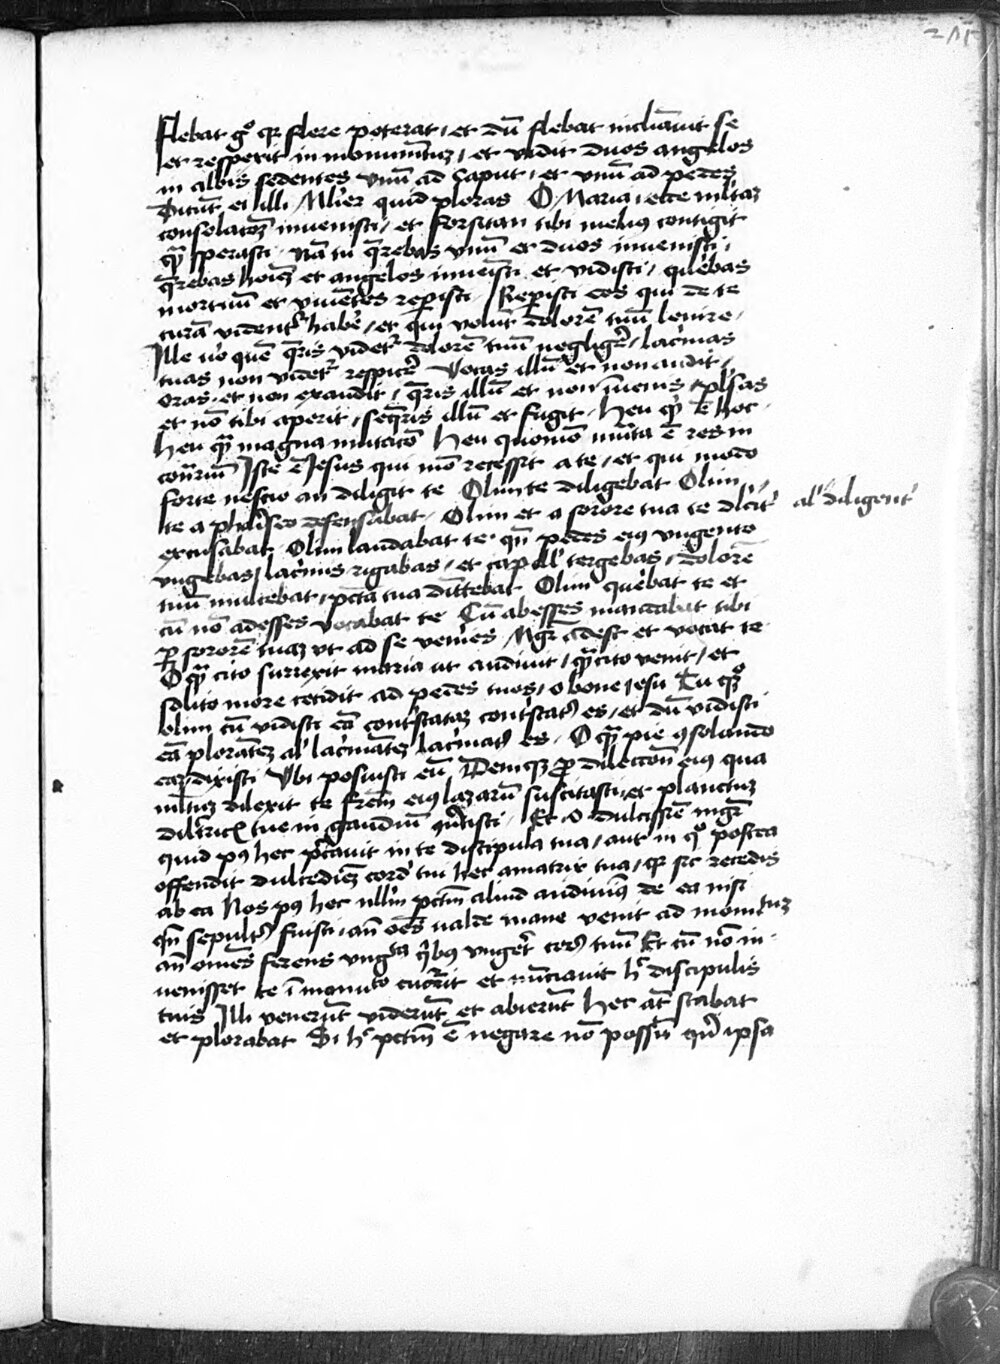 215
Flebat gͦ qꝛ flere poterat / et dū flebat incliavit se
et respexit in monumētū / et vidit duos angelos
in albis sedentes vnū ad caput / et vnū ad pedes
Dicūt ei illi / Mlier quid ploras O Maria / ecce mltaꝫ
consolacoꝫ invenisti / et forsitan tibi melius contigit
qͣꝫ sperasti / Nā tu qͣrebas vnū et duos invenisti /
qͣrebas hoiēꝫ et angelos inveisti et vidisti / quebas
mortuū et viuētes reperisti / Reperisti eos qui de te
curā videntͬ habe / et qui volūt dolorē tuū lenire /
Ille vͦo quē qͣris videtͬ dolorē tuū negligͬe / lacrimas
tuas non videtͬ respicͬe Vocas illū et non audit /
oras et non exaudit / qͣris illū et non īvenis / plsas
et nō tibi aperit / seqͬris illū et fugit / heu qͥd ē hoc
heu qͣꝫ magna mutacō heu quomō mūta ē res in
cōtrariū Iste ē Jesus qui mō recessit a te / et qui modo
forte nescio an diligit te Olim te diligebat Olim
te a phariseo defensabat / Olim et a sorore tua te dlcitͬ
al' diligentͬ
excusabat Olim laudabat te qn̄ pedes eiꝰ vngento
vngebas / lacͥmis rigabas / et capill' tergebas / dolorē
tuū mulcebat / pctā tua dīttebat Olim quebat te et
cū nō adesses vocabat te Cū abesses mandabat tibi
ꝑ sororē tuaꝫ vt ad se venies / Mgr̄ adest et vocat te
O qͣꝫ cito surrexit maria ut audivit / qͣꝫ cito venit / et
solito more cecidit ad pedes tuos / o bone iesu Tu qͦꝫ
olim cū vidisti eā contͥstataꝫ contͥstatꝰ es / et dū vidisti
eā plorātēꝫ al' lacͥmātēꝫ lacͥmatꝰ es / O qͣꝫ pie ꝯsolando
eaꝫ dixisti Vbi posuisti eū Deniqꝫ ꝓ dileccōn eiꝰ qua
mltuꝫ dilexit te frēm eiꝰ lazarū suscitasti / et planctuꝫ
dilctͥcis tue in gaudiū ꝯu'tisti / Et o dulcissīe mgr̄
quid pꝰ hec pͨcauit in te discipula tua / aut in qͦ postea
offendit dulcediēꝫ cordͥ tui hec amatrix tua / qꝛ sic recedis
ab ea Nos pꝰ hec nllm pctm̄ aliud audiuimꝰ de ea nisi
qn̄ sepultꝰ fuisti / an̄ oēs valde mane venit ad monutuꝫ
an̄ omēs ferens vngta qͥbꝰ vngͬet corpꝰ tuū Et cū nō in-
venisset te ī monuto cucͬrit et nūciauit hͨ discipulis
tuis Illi venerūt viderūt et abierūt hec at̄ stabat
et plorabat Si hͨ pctm̄ ē negare nō possum qͥn ipsa